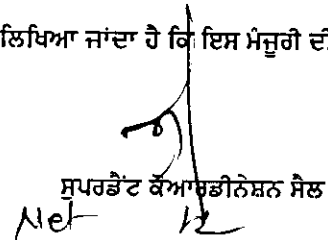 ਲਿਖਿਆ ਜਾਂਦਾ ਹੈ ਕਿ ਇਸ ਮੰਜੂਰੀ ਦੀ
ਸੁਪਰਡੈਂਟ ਕੋਆਰਡੀਨੇਸ਼ਨ ਸੈਲ